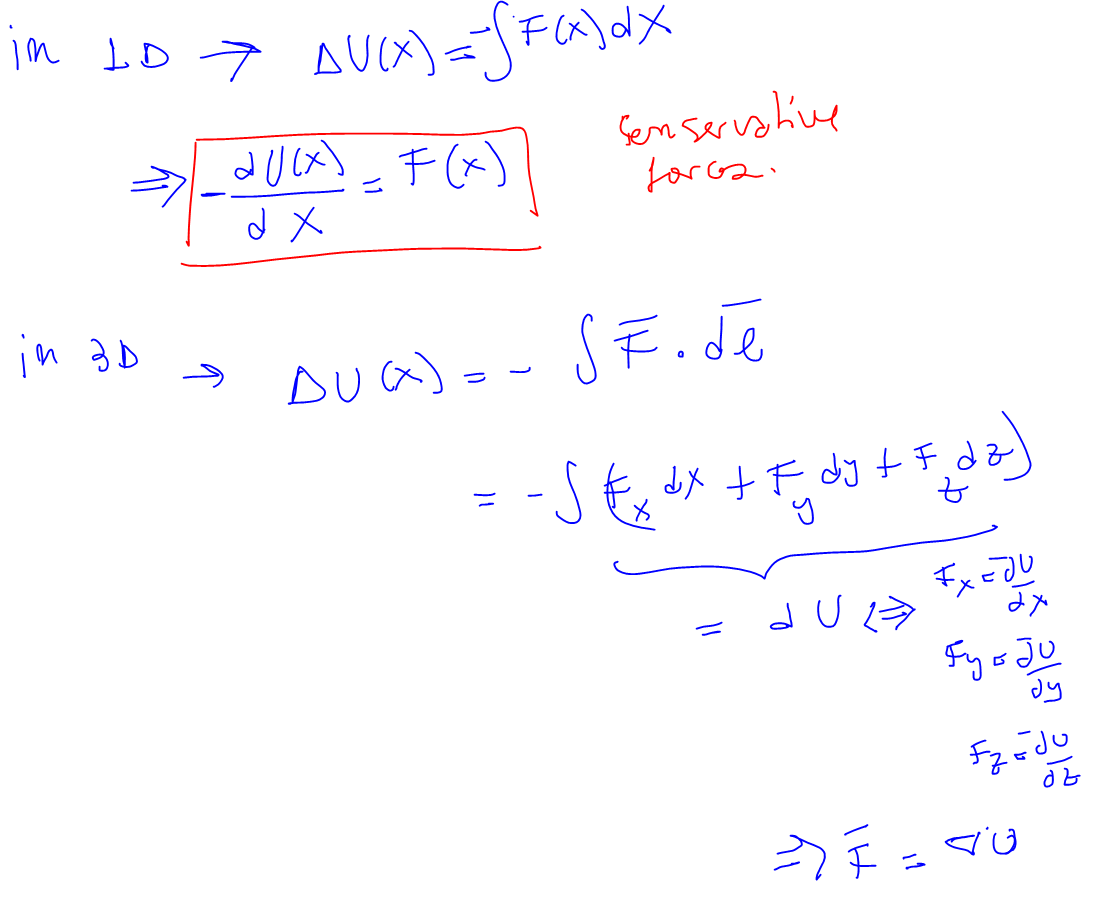 in 1D → ΔU(x) = -∫F(x)dx
⇒ -dU(x)/dx = F(x)
Conservative
force.
in 3D → ΔU(x) = - ∫ F̅ . d̅l̅
= -∫(F_x dx + F_y dy + F_z dz)
= dU ⇔ F_x = -∂U/∂x
F_y = -∂U/∂y
F_z = -∂U/∂z
⇒ F̅ = ∇U